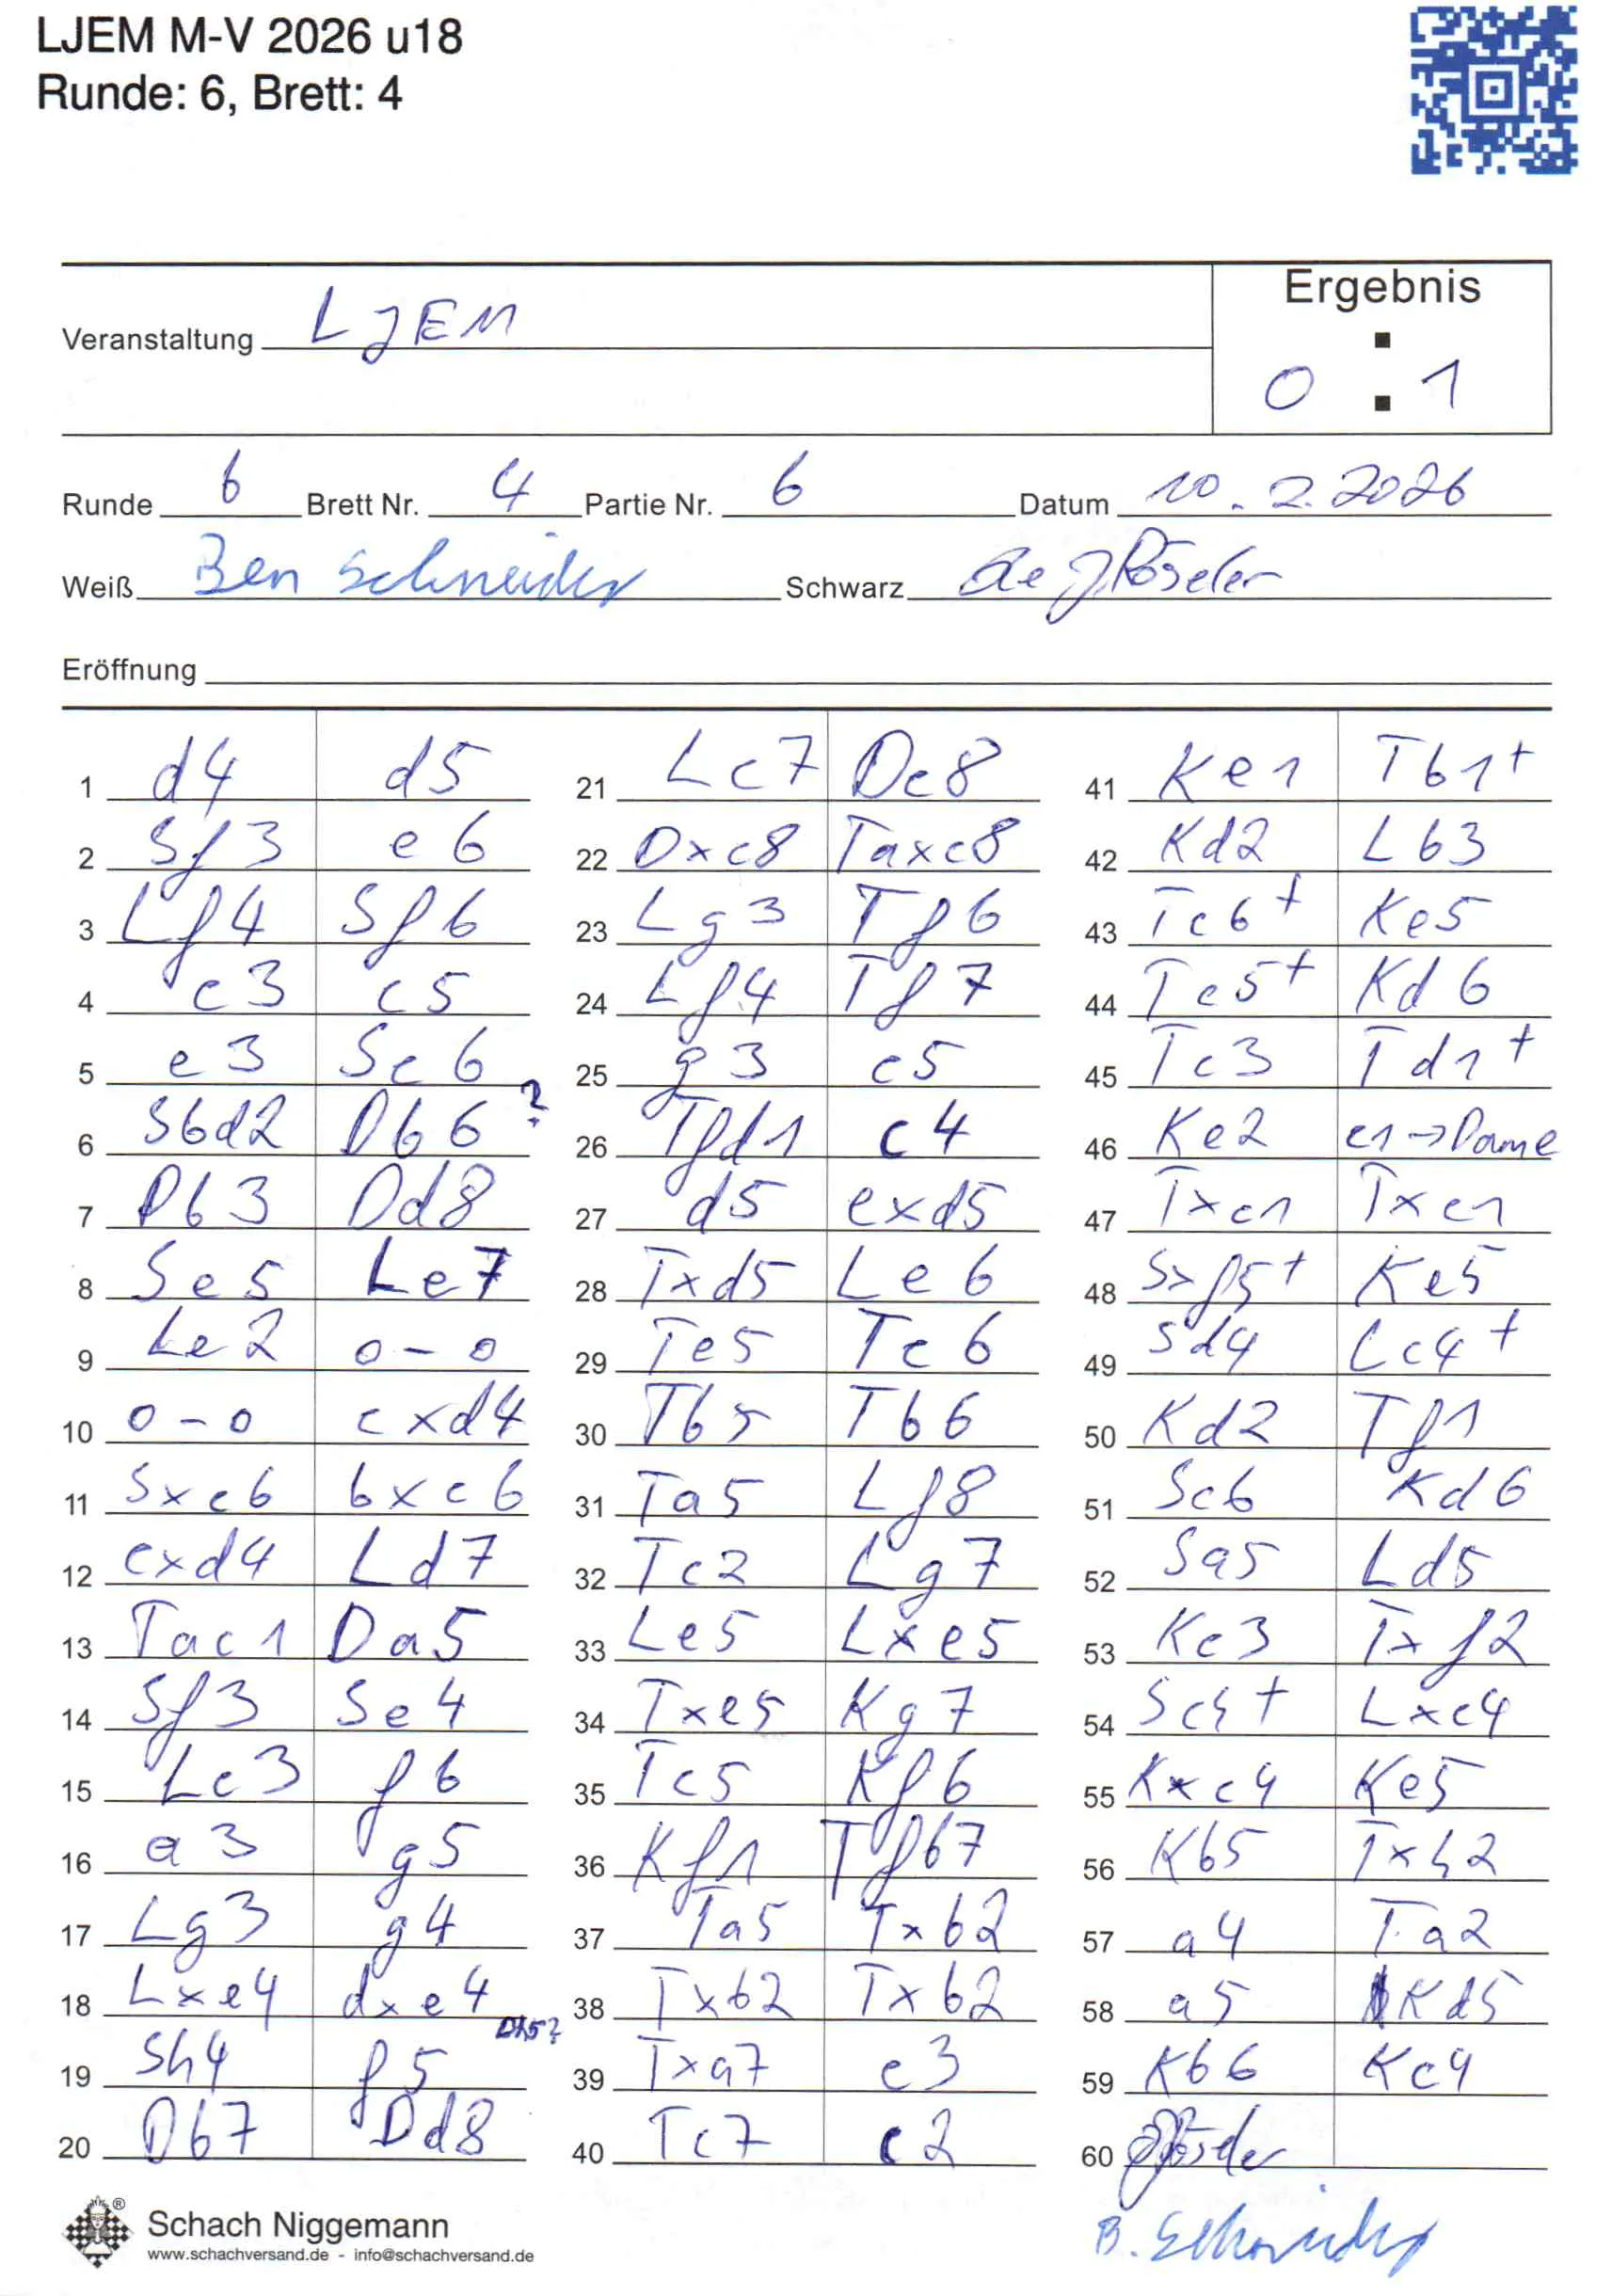 LJEM M-V 2026 u18
Runde: 6, Brett: 4
Veranstaltung LJEM
Ergebnis
0 : 1
Runde 6 Brett Nr. 4 Partie Nr. 6 Datum 10.2.2026
Weiß Ben Schneider Schwarz Röseler
Eröffnung
1 d4 d5
2 Sf3 e6
3 Lf4 Sf6
4 c3 c5
5 e3 Sc6
6 Sbd2 Db6 ?
7 Db3 Dd8
8 Se5 Le7
9 Le2 0-0
10 0-0 cxd4
11 Sxc6 bxc6
12 exd4 Ld7
13 Tac1 Da5
14 Sf3 Se4
15 Ld3 f6
16 a3 g5
17 Lg3 g4
18 Lxe4 dxe4
Dh5?
19 Sh4 f5
20 Db7 Dd8
21 Lc7 Dc8
22 Dxc8 Taxc8
23 Lg3 Tf6
24 Lf4 Tf7
25 g3 c5
26 Tfd1 c4
27 d5 exd5
28 Txd5 Le6
29 Te5 Tc6
30 Tb5 Tb6
31 Ta5 Lf8
32 Tc2 Lg7
33 Le5 Lxe5
34 Txe5 Kg7
35 Tc5 Kf6
36 Kf1 Tfb7
37 Ta5 Txb2
38 Txb2 Txb2
39 Txa7 c3
40 Tc7 c2
41 Ke1 Tb1+
42 Kd2 Lb3
43 Tc6+ Ke5
44 Tc5+ Kd6
45 Tc3 Td1+
46 Ke2 c1->Dame
47 Txc1 Txc1
48 Sxf5+ Ke5
49 Sd4 Lc4+
50 Kd2 Tf1
51 Sc6 Kd6
52 Sa5 Ld5
53 Kc3 Txf2
54 Sc4+ Lxc4
55 Kxc4 Ke5
56 Kb5 Txh2
57 a4 Ta2
58 a5 Kd5
59 Kb6 Kc4
60 Röseler
B. Schneider
Schach Niggemann ®
www.schachversand.de - info@schachversand.de